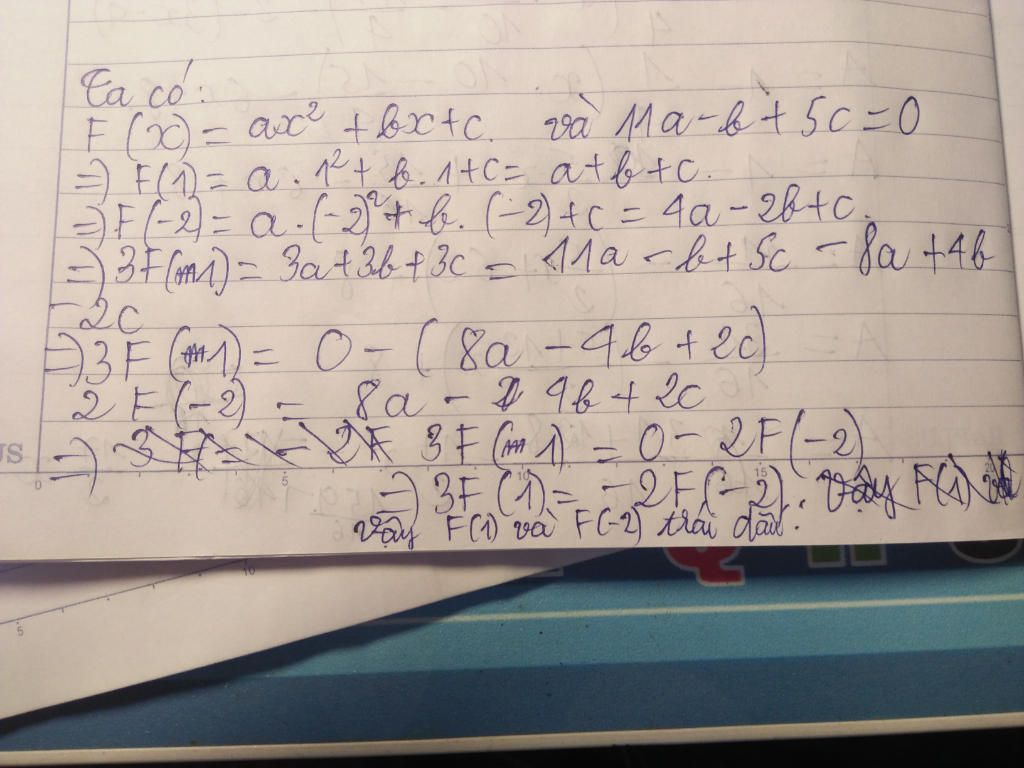 Ta có:
F(x) = ax² + bx + c. và 11a - b + 5c = 0
=) F(1) = a . 1² + b . 1 + c = a + b + c.
=) F(-2) = a . (-2)² + b . (-2) + c = 4a - 2b + c.
=) 3F(1) = 3a + 3b + 3c = 11a - b + 5c - 8a + 4b
- 2c
=) 3F(1) = 0 - (8a - 4b + 2c)
2F(-2) = 8a - 4b + 2c
=) 3F(1) = 0 - 2F(-2)
=) 3F(1) = -2F(-2).
Vậy F(1) và F(-2) trái dấu.
US
0 5 10 15 20
Q
5 10